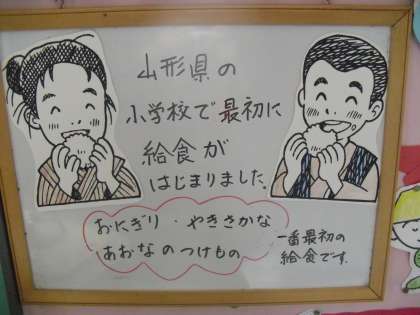 山形県の
小学校で最初に
給食が
はじまりました。
おにぎり・やきざかな
あおなのつけもの
一番最初の
給食です。